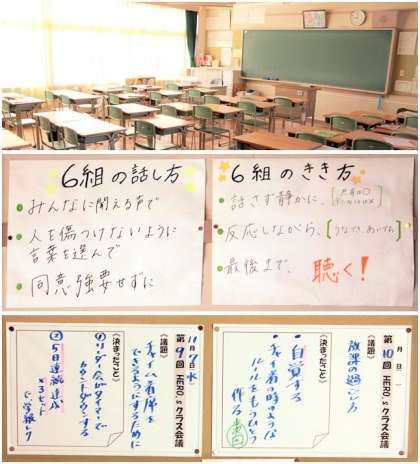 6組の話し方
みんなに聞える声で
人を傷つけないように
言葉を選んで
同意強要せずに
6組のきき方
話さず静かに、
反応しながら、[うなづき、あいづち]
最後まで、聴く!
11月9日(水)
第9回 HERO,sクラス会議
〈議題〉
チャイム着席を
できるようにするために
〈決まったこと〉
①リーダー会がタイマーで
カウントダウンする
②5日連続達成
×3セット
で学級レク
月 日( )
第10回 HERO,sクラス会議
〈議題〉
放課の過ごし方
〈決まったこと〉
・自覚する
・チャイム着の時のような
ルールをもうひとつ
作る